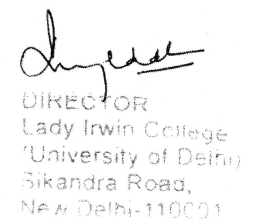 DIRECTOR
Lady Irwin College
(University of Delhi)
Sikandra Road,
New Delhi-110001